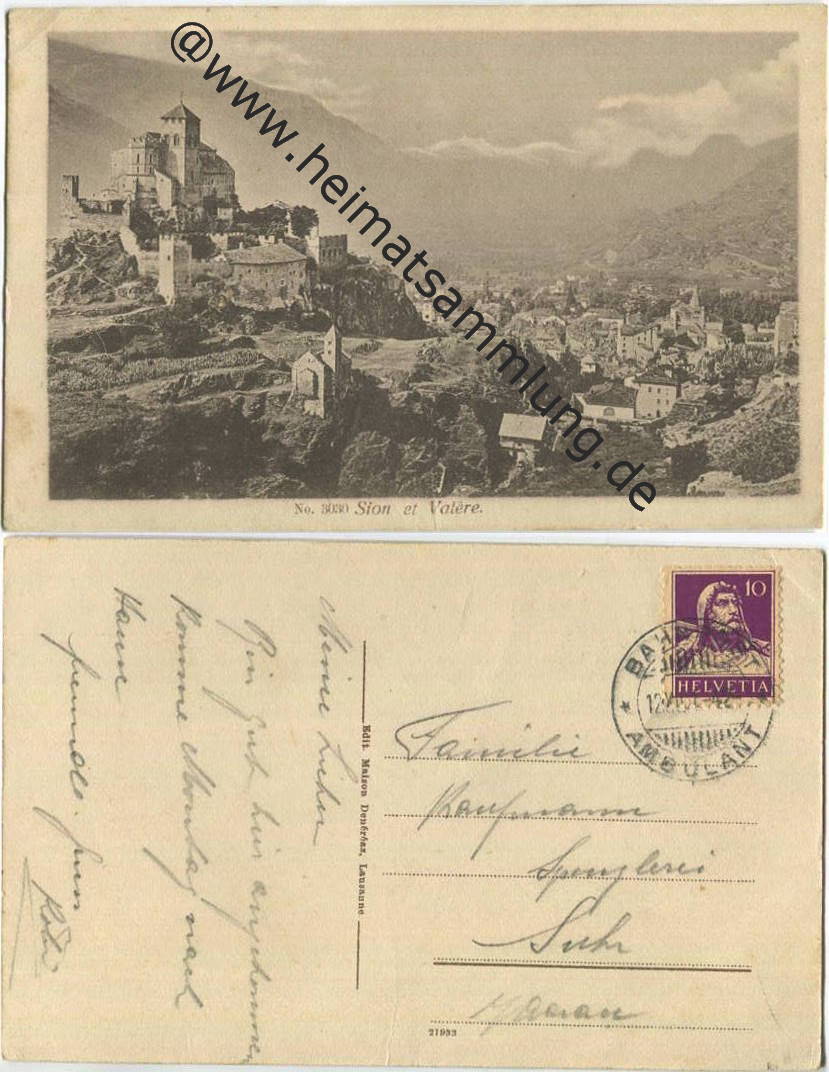 @www.heimatsammlung.de
No. 3030 Sion et Valère.
10
HELVETIA
AMBULANT
Meine Lieben
Bin gut hier angekommen,
Komme Montag nach
Hause
freundl. Gruss
Edit. Maison Denéréaz, Lausanne
Familie
Kaufmann
Spenglerei
Suhr
b/Aarau
21933